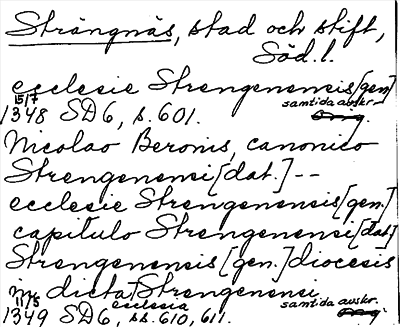 Strängnäs, stad och stift,
Söd. l.
ecclesie Strengenensis [gen.]
15/7 samtida avskr.
1348 SD 6, s. 601.
Nicolao Beronis, canonico
Strengenensi [dat.] --
ecclesie Strengenensis [gen.]
capitulo Strengenensi [dat.]
Strengenensis [gen.] diocesis
in dicta Strengenensi
11/5 ecclesia samtida avskr.
1349 SD 6, ss. 610, 611.